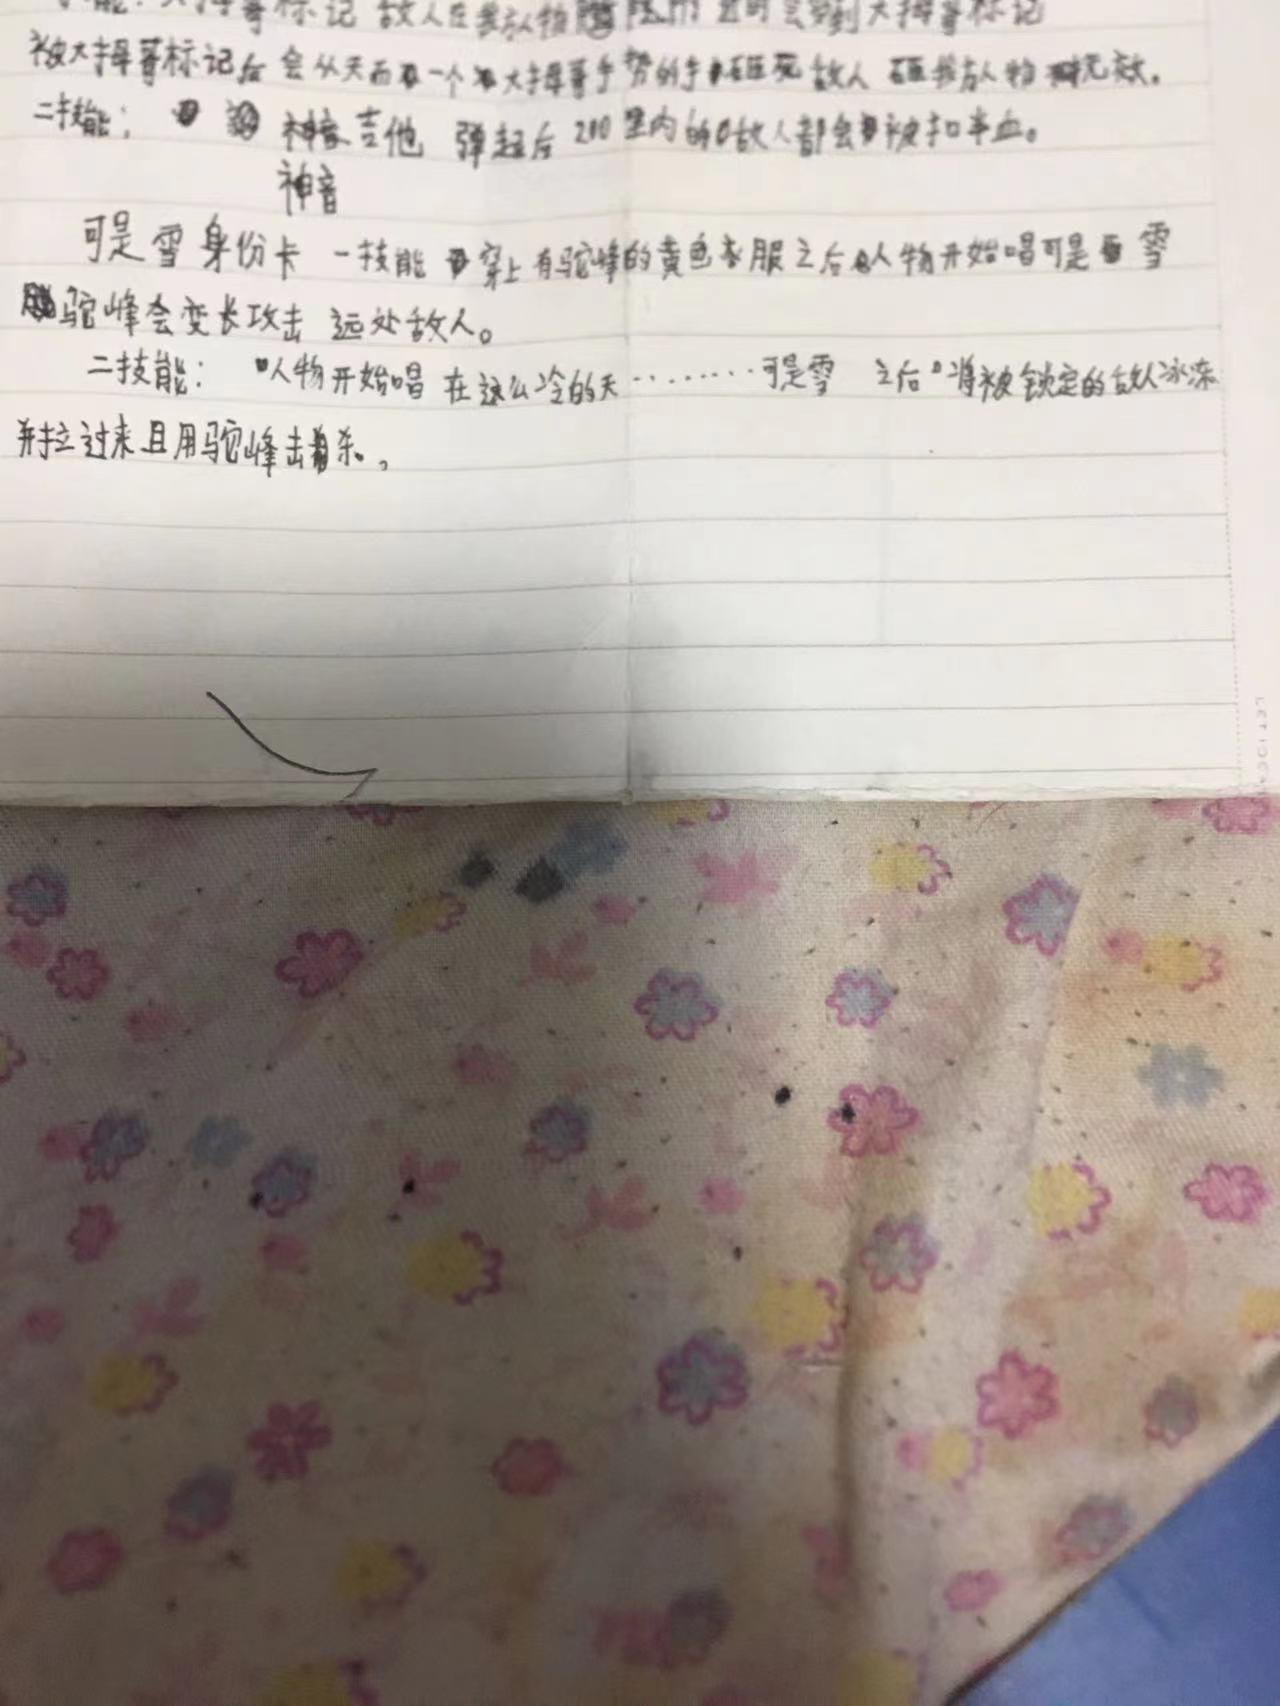 技能：大拇哥标记 敌人在我队物 会受到大拇哥标记
被大拇哥标记后 会从天而 一个 大拇哥手势的手 砸死敌人 砸我方人物 无效。
二技能： 神音吉他 弹起后 200里内的敌人都会被扣半血。
神音
可是雪身份卡 一技能 穿上有驼峰的黄色衣服之后 人物开始唱可是 雪
驼峰会变长攻击 远处敌人。
二技能： 人物开始唱 在这么冷的天………可是雪 之后 将被锁定的敌人冰冻
并拉过来且用驼峰击杀。，